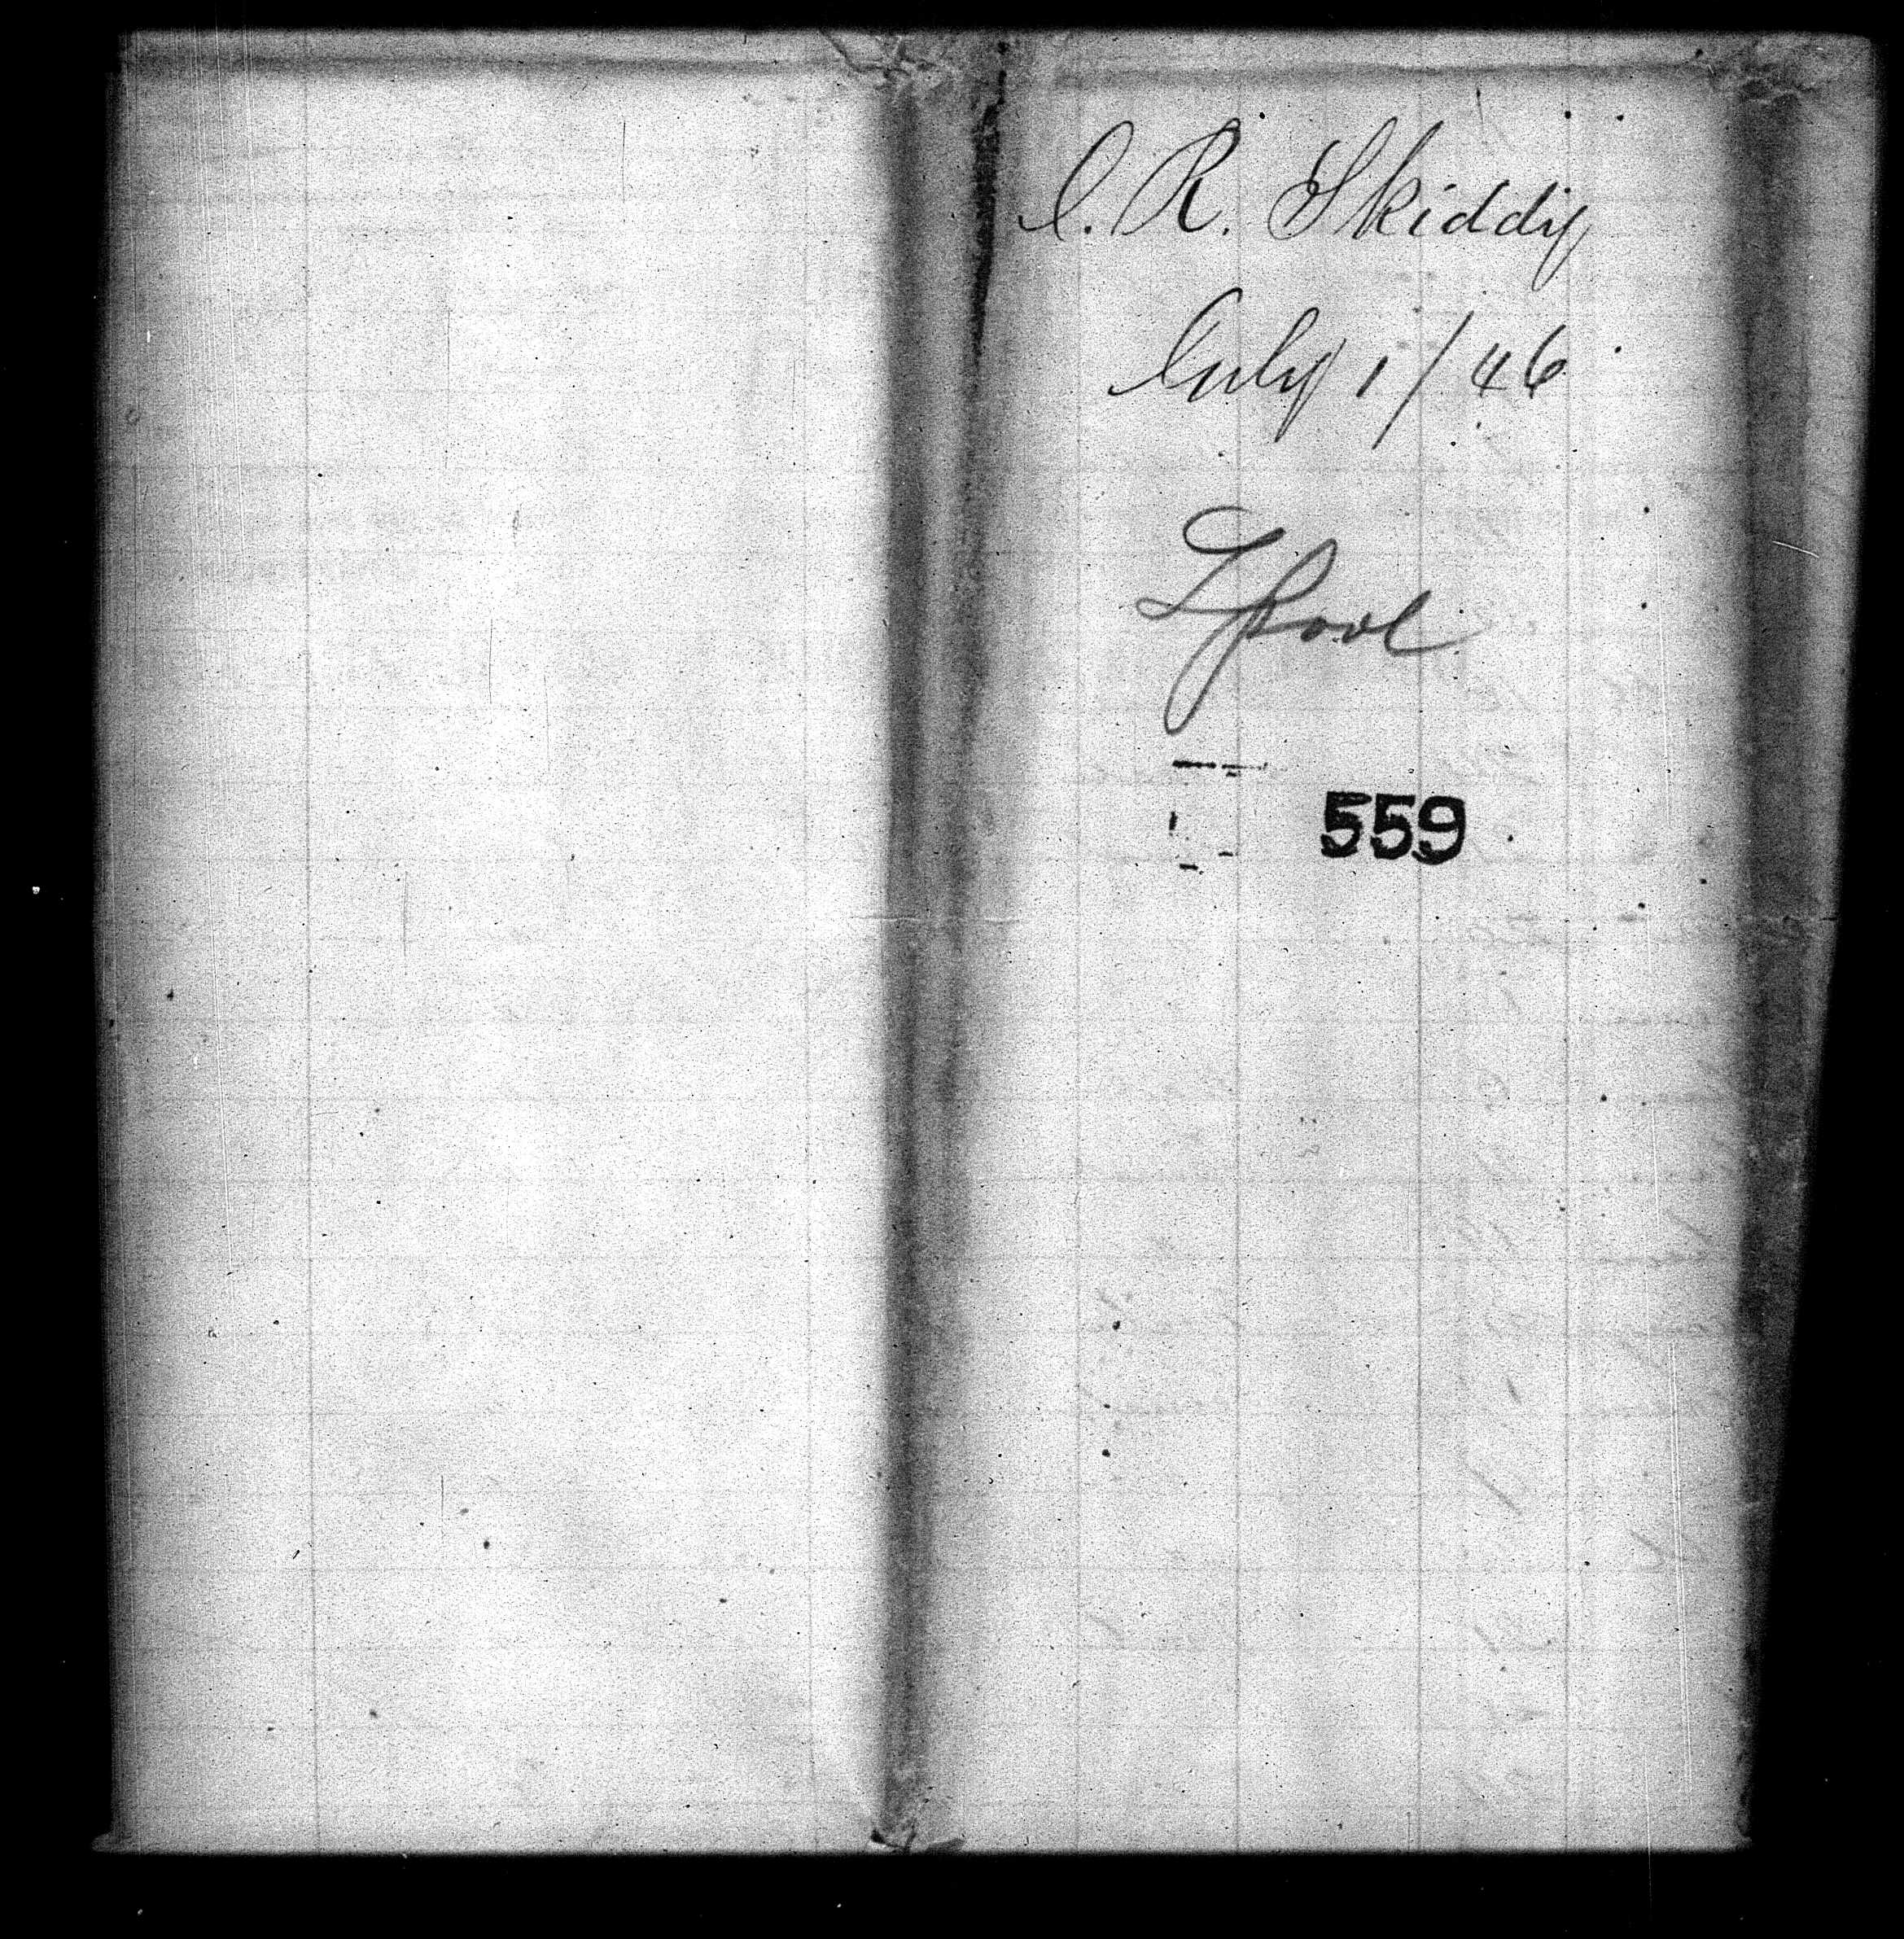 C. R. Skiddy
July 1/46
L'pool
559